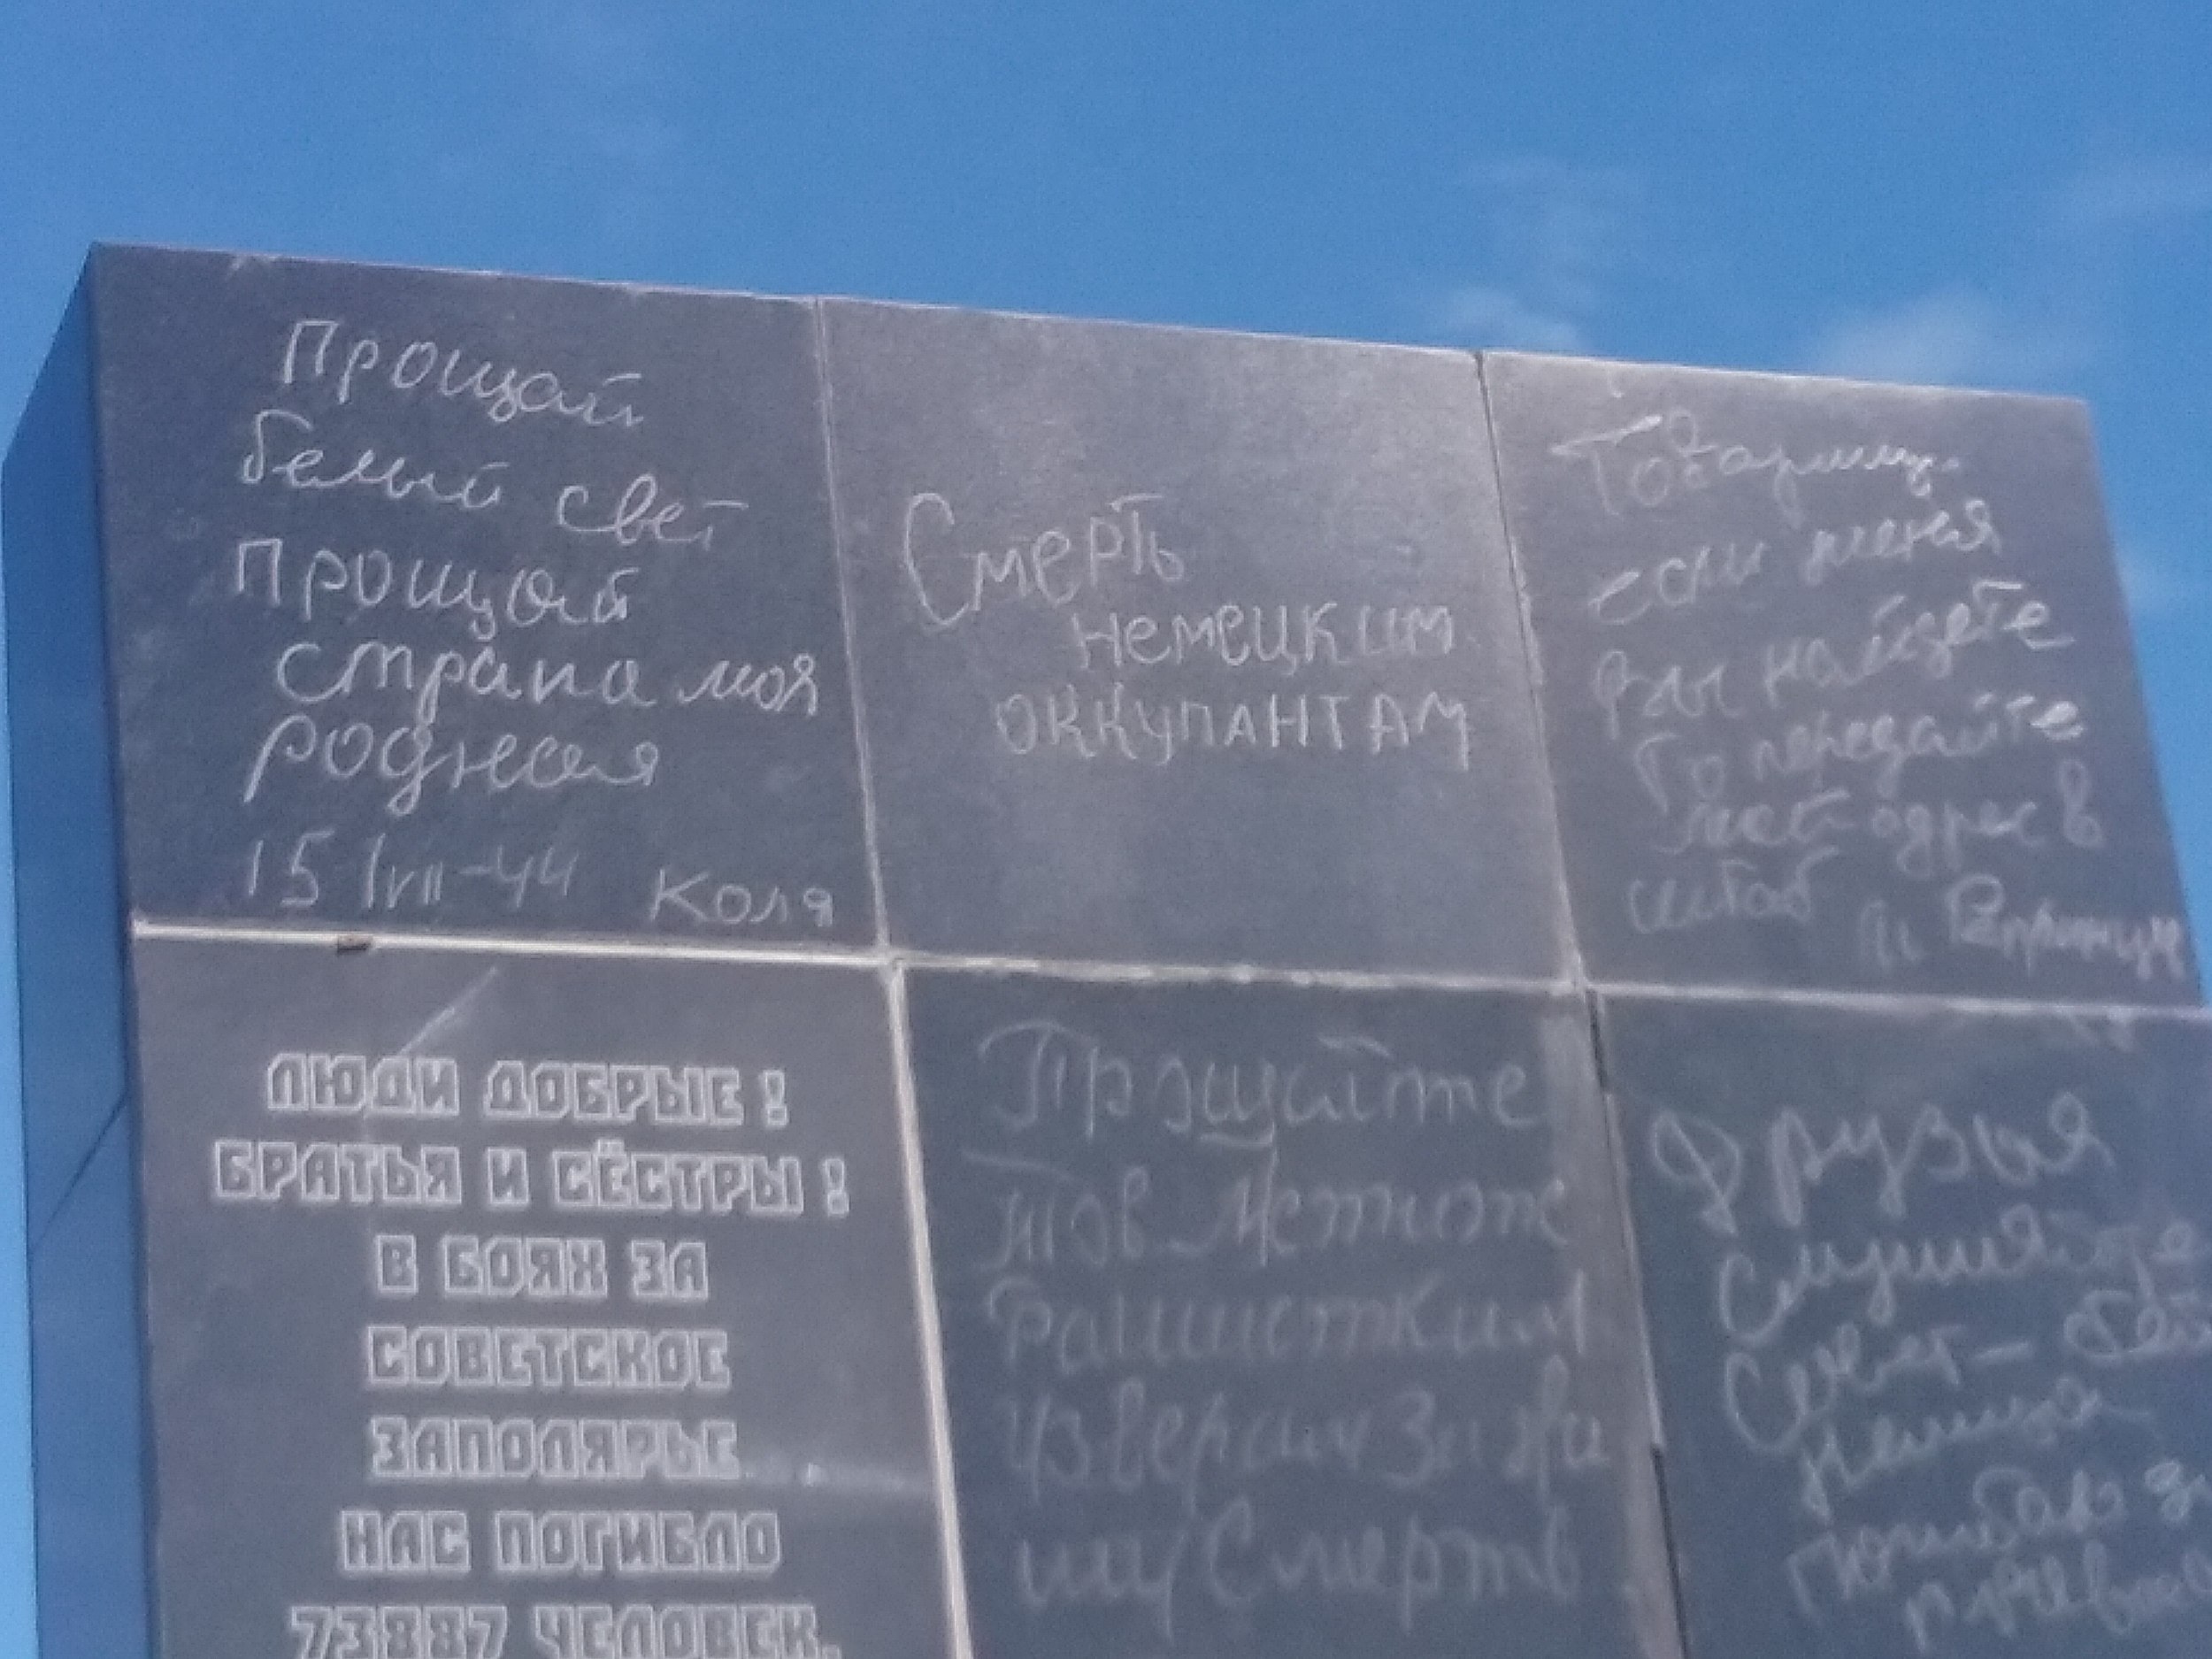 Прощай
белый свет
Прощай
страна моя
родная
15/VII-44 Коля
Смерть
немецким
оккупантам
Товарищ
если меня
вы найдете
то передайте
адрес в
штаб
ЛЮДИ ДОБРЫЕ!
БРАТЬЯ И СЁСТРЫ!
В БОЯХ ЗА
СОВЕТСКОЕ
ЗАПОЛЯРЬЕ
НАС ПОГИБЛО
73887 ЧЕЛОВЕК.
Прощайте
тов
извергам за на
шу Смерть
Друзья
Слушайте
Совет — бей
немца
Погибаю за